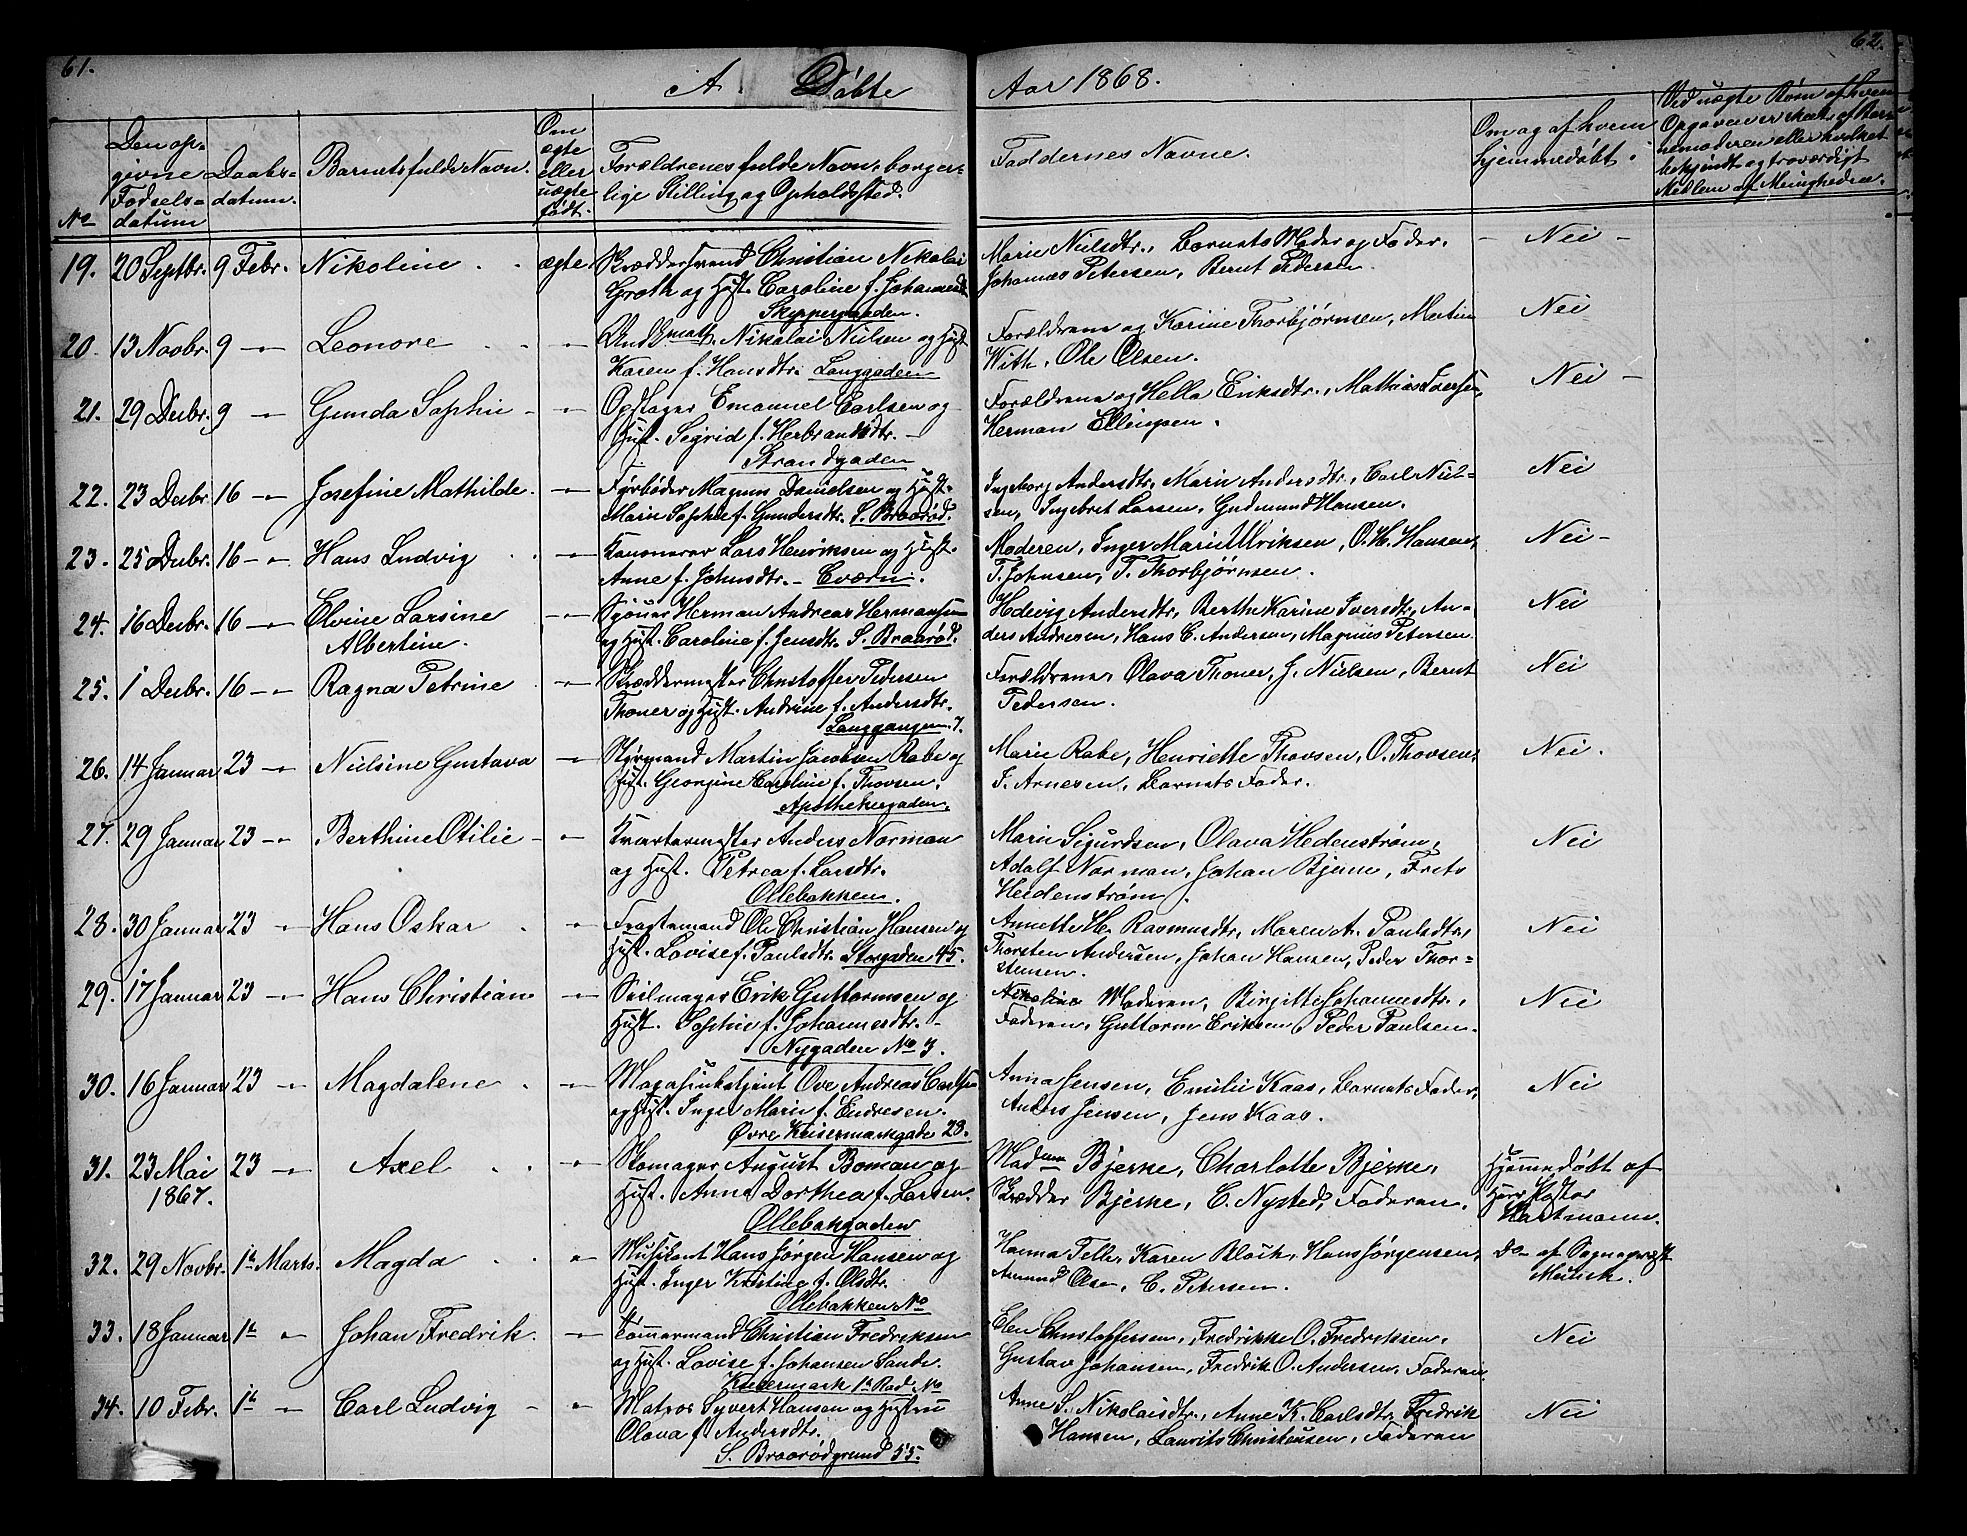 61.
62.
A Döbte
Aar 1868.
No
Den op-
givne
Födsels-
datum
Daabs-
datum.
Barnets fulde Navn.
Om
ægte
eller
uægte
födt.
Forældrenes fulde Navn, borger-
lige Stilling og Opholdssted.
Faddernes Navne.
Om og af hvem
hjemmedöbt.
Ved uægte Börn af hvem
Opgaven er skeet, af Barne-
nemoderen eller hvilket
bekjendt og troværdigt
Medlem af Menigheden.
19. 20 Septbr. 9 Febr. Nikoline ægte Skræddersvend Christian Nikolai
Groth og Hust. Caroline f. Johannesd.
Skippergaden.
Marie Nielsdtr., Barnets Moder og Fader.
Johannes Petersen, Bernt Pedersen.
Nei
20. 13 Novbr. 9 Leonore Nikolai Nielsen og Hust
Karen f. Hansdtr. Langgaden
Forældrene og Karine Thorbjørnsen, Martin
With, Ole Olsen.
Nei
21. 29 Decbr. 9 Gunda Sophie Opslager Emanuel Carlsen og
Hust. Sigrid f. Herbrandsdtr.
Strandgaden
Forældrene og Hella Eriksdtr., Mathias Iversen,
Herman Ellingsen.
Nei
22. 23 Decbr. 16 Josefine Mathilde. Fyrböder Magnus Danielsen og Hust.
Marie Sophie f. Gundersdtr. S. Braaröd.
Ingeborg Andersdtr., Marie Andersdtr., Carl Niel-
sen, Ingebret Larsen, Gudmund Hansen.
Nei
23. 25 Decbr. 16 Hans Ludvig Kanonerer Lars Henriksen og Hust.
Anne f. Johnsdtr. Tværn.
Moderen, Inger Marie Ulriksen, O. H. Hansen,
T. Johnsen, T. Thorbjørnsen.
Nei
24. 16 Decbr. 16 Elvine Larsine
Albertine.
Sjöuer Herman Andreas Hermansen
og Hust. Caroline f. Jensdtr. S. Braaröd.
Hedevig Andersdtr., Berthe Karine Iversdtr., An-
ders Andresen, Hans C. Andersen, Magnus Petersen
Nei
25. 1 Decbr. 16 Ragna Petrine Skræddermester Christoffer Pedersen
Thoner og Hust. Andrine f. Andersdtr.
Langgangen 7.
Forældrene, Olava Thoner, J. Nielsen, Bernt
Pedersen.
Nei
26. 14 Januar 23 Nielsine Gustava Styrmand Martin Jacobsen Rabe og
Hust. Georgine Caroline f. Thovsen.
Apothekergaden.
Marie Rabe, Henriette Thovsen, O. Thovsen,
T. Arnesen, Barnets Fader.
Nei.
27. 29 Januar 23 Berthine Otilie Kvartermester Anders Norman
og Hust. Petrea f. Larsdtr.
Ollebakken.
Marie Sigurdsen, Olava Hedenström,
Adolf Norman, Johan Bjerne, Frets
Heidenström.
Nei
28. 30 Januar 23 Hans Oskar Fragtemand Ole Christian Hansen og
Hust. Lovise f. Paulsdtr. Storgaden 45.
Annette M. Rasmusdtr., Maren A. Paulsdtr.,
Thorsten Andersen, Johan Hansen, Peder Thor-
stensen.
Nei
29. 17 Januar 23 Hans Christian Seilmager Erik Guttormsen og
Hust. Sophie f. Johannesdtr.
Nygaden No 3.
Nikoline Moderen, Birgitte Johannesdtr.,
Faderen, Guttorm Eriksen, Peder Paulsen.
Nei
30. 16 Januar 23 Magdalene Magasinbetjent Ove Andreas Carlsen
og Hust. Inger Marie f. Endresen.
Övre Keisermarkgade 28.
Anna Jensen, Emilie Kaas, Barnets Fader,
Anders Jensen, Jens Kaas.
Nei
31. 23 Mai
1867.
23 Axel Skomager August Boman og
Hust. Anne Dorthea f. Larsen.
Ollebakgaden
Madme Bjerke, Charlotte Bjerke,
Skrædder Bjerke, C. Nysted, Faderen.
Hjemmedöbt af
Herr Pastor
Hartmann.
32. 29 Novbr. 1te Marts. Magda Musikant Hans Jörgen Hansen og
Hust. Inger Kristine f. Olsdtr.
Ollebakken No
Hanna Telle, Karen Bloch, Hans Jörgensen,
Amund Olsen, C. Petersen.
Do af Sognepræst
Meisch.
33. 18 Januar 1te Johan Fredrik. Tömmermand Christian Fredriksen
og Hust. Lovise f. Johansen Sande.
Keisermark 1te Rad No
Elen Christoffersen, Fredrikke O. Fredriksen,
Gustav Johansen, Fredrik O. Andersen, Faderen
Nei
34. 10 Febr. 1te Carl Ludvig Matros Syvert Hansen og Hustru
Olava f. Andersdtr.
S. Braarödgrund 55.
Anne S. Nikolaisdtr., Anne K. Carlsdtr., Fredrik
Hansen, Laurits Christensen, Faderen
Nei